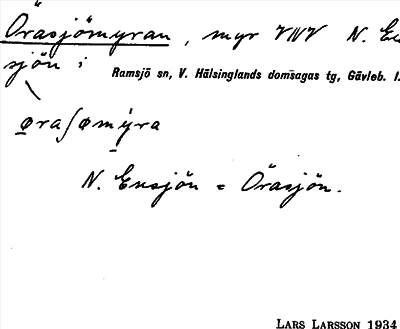 Örasjömyran, myr VNV N. En
sjön i
Ramsjö sn, V. Hälsinglands domsagas tg, Gävleb. l.
øraʃømýra
N. Ensjön = Örasjön.
LARS LARSSON 1934